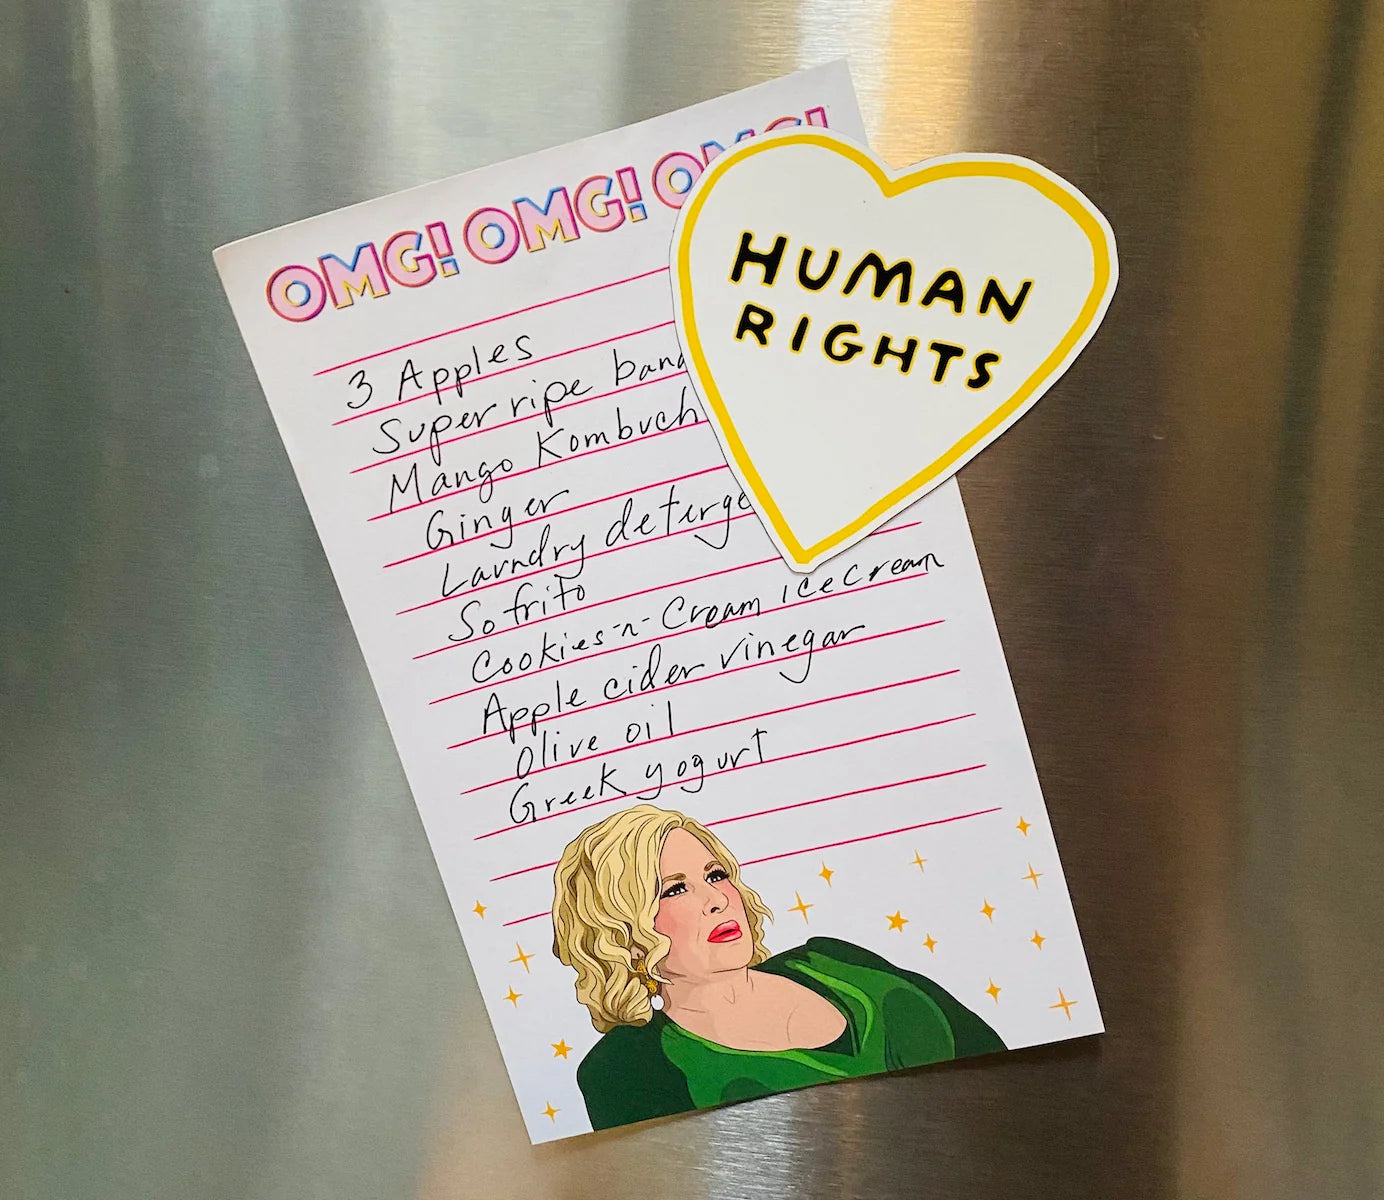 OMG! OMG! OMG!
HUMAN
RIGHTS
3 Apples
Super ripe bana
Mango Kombuch
Ginger
Laundry deterge
Sofrito
Cookies-n-Cream ice cream
Apple cider vinegar
Olive oil
Greek yogurt